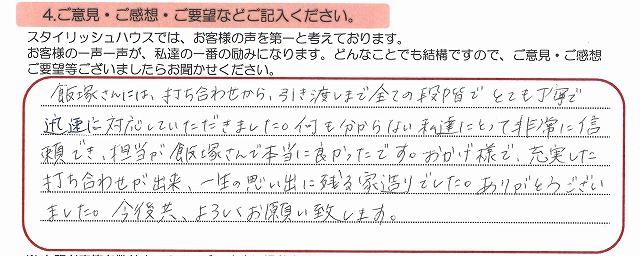 4.ご意見・ご感想・ご要望などご記入ください。
スタイリッシュハウスでは、お客様の声を第一と考えております。
お客様の一声一声が、私達の一番の励みになります。どんなことでも結構ですので、ご意見・ご感想
ご要望等ございましたらお聞かせください。
飯塚さんには、打ち合わせから、引き渡しまで全ての段階でとても丁寧で
迅速に対応していただきました。何も分からない私達にとって非常に信
頼でき、担当が飯塚さんで本当に良かったです。おかげ様で、充実した
打ち合わせが出来、一生の思い出に残る家造りでした。ありがとうござい
ました。今後共、よろしくお願い致します。